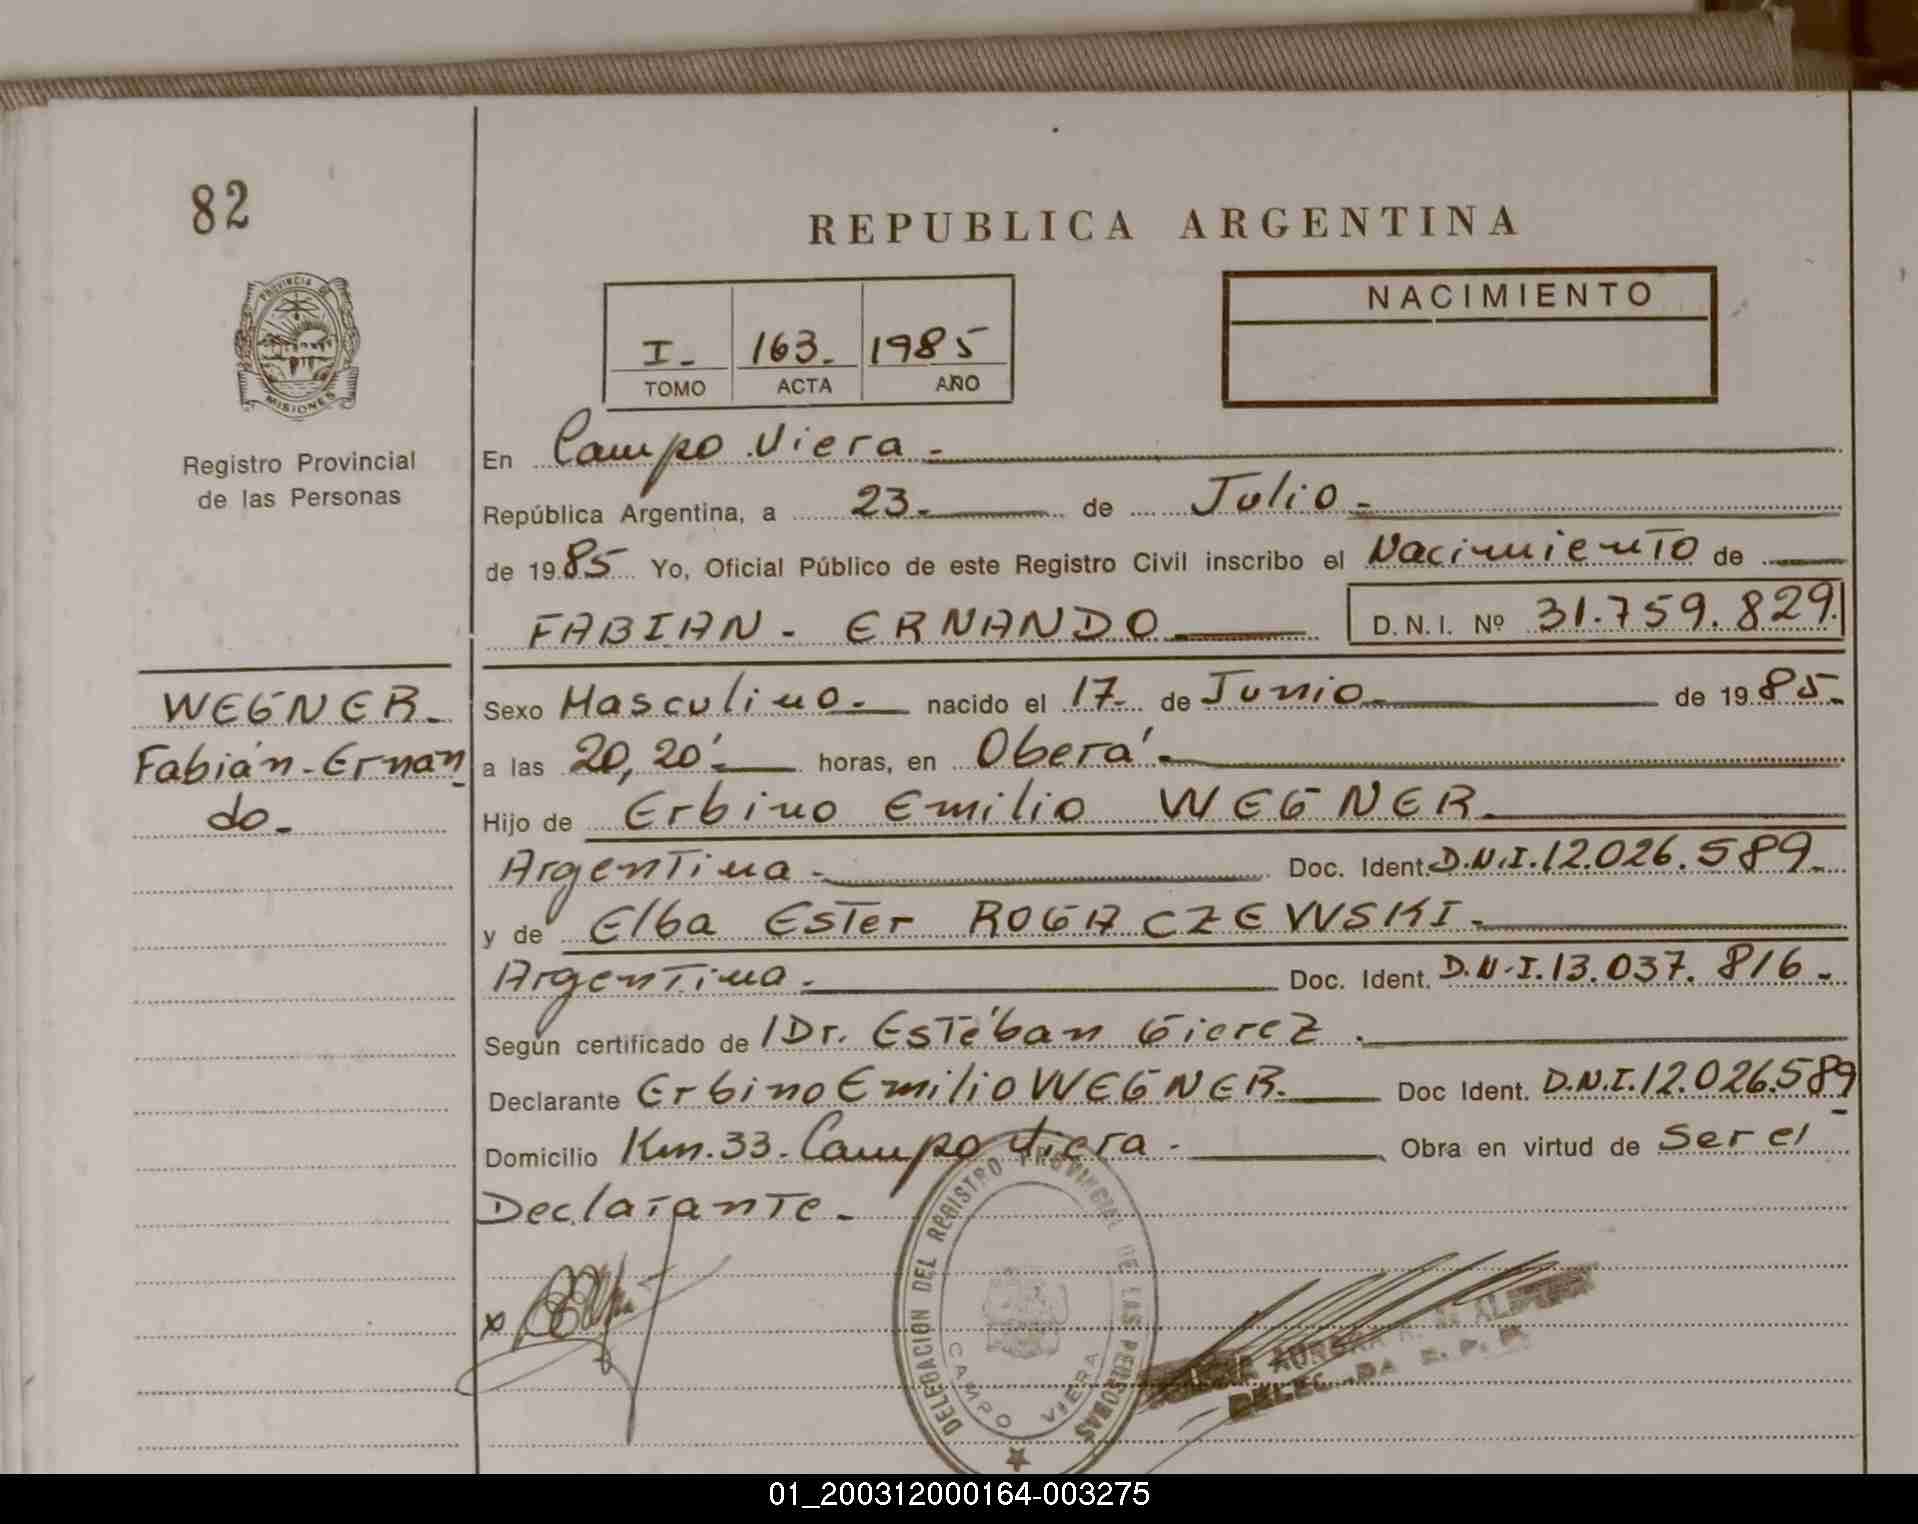 82
REPUBLICA ARGENTINA
PROVINCIA DE
MISIONES
Registro Provincial
de las Personas
I- 163- 1985
TOMO ACTA AÑO
NACIMIENTO
En Campo Viera-
República Argentina, a 23- de Julio-
de 1985 Yo, Oficial Público de este Registro Civil inscribo el Nacimiento de
FABIAN - ERNANDO D.N.I. Nº 31.759.829.
WEGNER-
Fabián-Ernan
do-
Sexo Masculino- nacido el 17- de Junio- de 1985-
a las 20,20'- horas, en Oberá-
Hijo de Erbino Emilio WEGNER-
Argentina- Doc. Ident. D.N.I. 12.026.589-
y de Elba Ester ROGACZEWSKI-
Argentina- Doc. Ident. D.N.I. 13.037.816-
Según certificado de Dr. Estéban Gierez.
Declarante Erbino Emilio WEGNER- Doc Ident. D.N.I. 12.026.589-
Domicilio Km. 33- Campo Viera- Obra en virtud de ser el
Declarante-
x
DELEGACION DEL REGISTRO PROVINCIAL DE LAS PERSONAS
CAMPO VIERA
AURORA
01_200312000164-003275